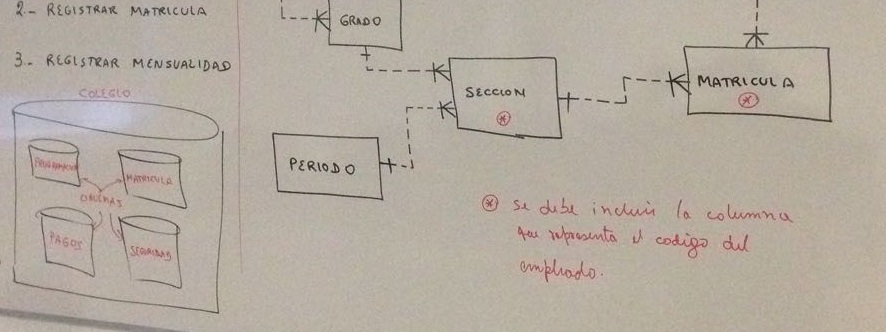 2.- REGISTRAR MATRICULA
3.- REGISTRAR MENSUALIDAD
COLEGIO
PROGRAMACION
MATRICULA
ESQUEMAS
PAGOS
SEGURIDAD
GRADO
SECCION
*
MATRICULA
*
PERIODO
* se debe incluir la columna
que representa el codigo del
empleado.